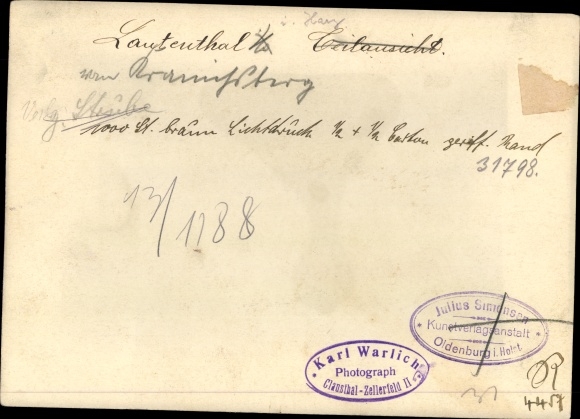 i. Harz
Lautenthal i/H. Teilansicht.
vom Kranichsberg
Vorlg. Stübe
1000 St. braun Lichtdruck 1/2 + 1/2 Carton geriff. Rand
31798.
13/1188
Julius Simonsen
Kunstverlagsanstalt
Oldenburg i. Holst.
Karl Warlich
Photograph
Clausthal-Zellerfeld II
4457